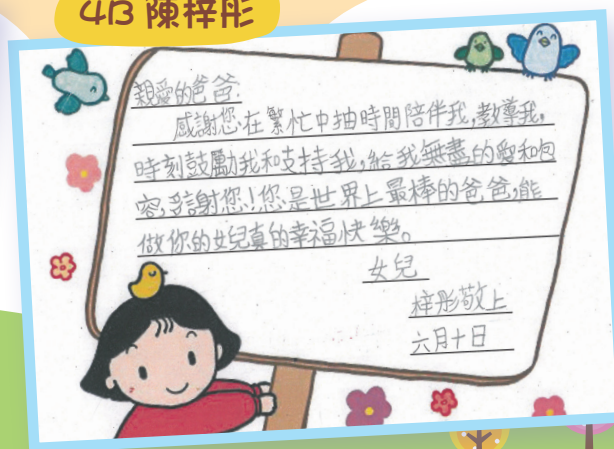 4B 陳梓彤
親愛的爸爸:
感謝您在繁忙中抽時間陪伴我,教導我,
時刻鼓勵我和支持我,給我無盡的愛和包
容,多謝您!您是世界上最棒的爸爸,能
做你的女兒真的幸福快樂。
女兒
梓彤敬上
六月十日